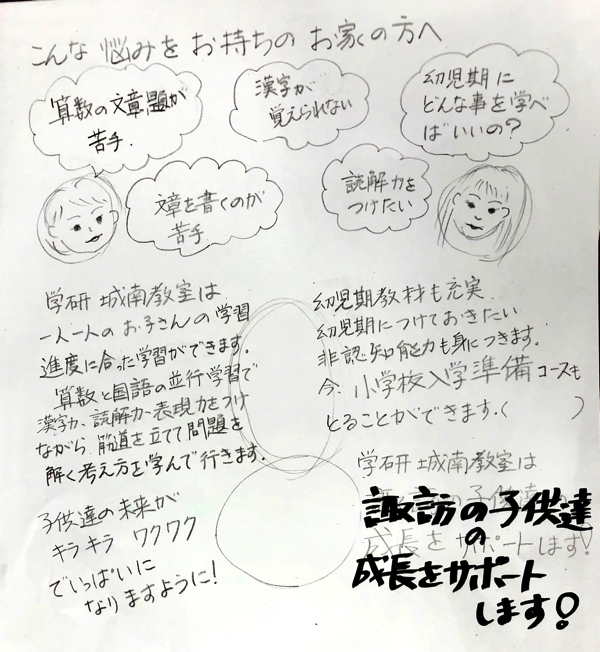 こんな悩みをお持ちのお家の方へ
算数の文章題が
苦手.
漢字が
覚えられない
幼児期に
どんな事を学べ
ばいいの?
文章を書くのが
苦手
読解力を
つけたい
学研 城南教室は
一人一人のお子さんの学習
進度に合った学習ができます.
算数と国語の並行学習で
漢字力、読解力、表現力をつけ
ながら、筋道を立てて問題を
解く考え方を学んで行きます.
子供達の未来が
キラキラ ワクワク
でいっぱいに
なりますように!
幼児期教材も充実.
幼児期につけておきたい
非認知能力も身につきます.
今、小学校入学準備コースも
とることができます.( )
学研 城南教室は
諏訪の子供達
の
成長をサポート
します!